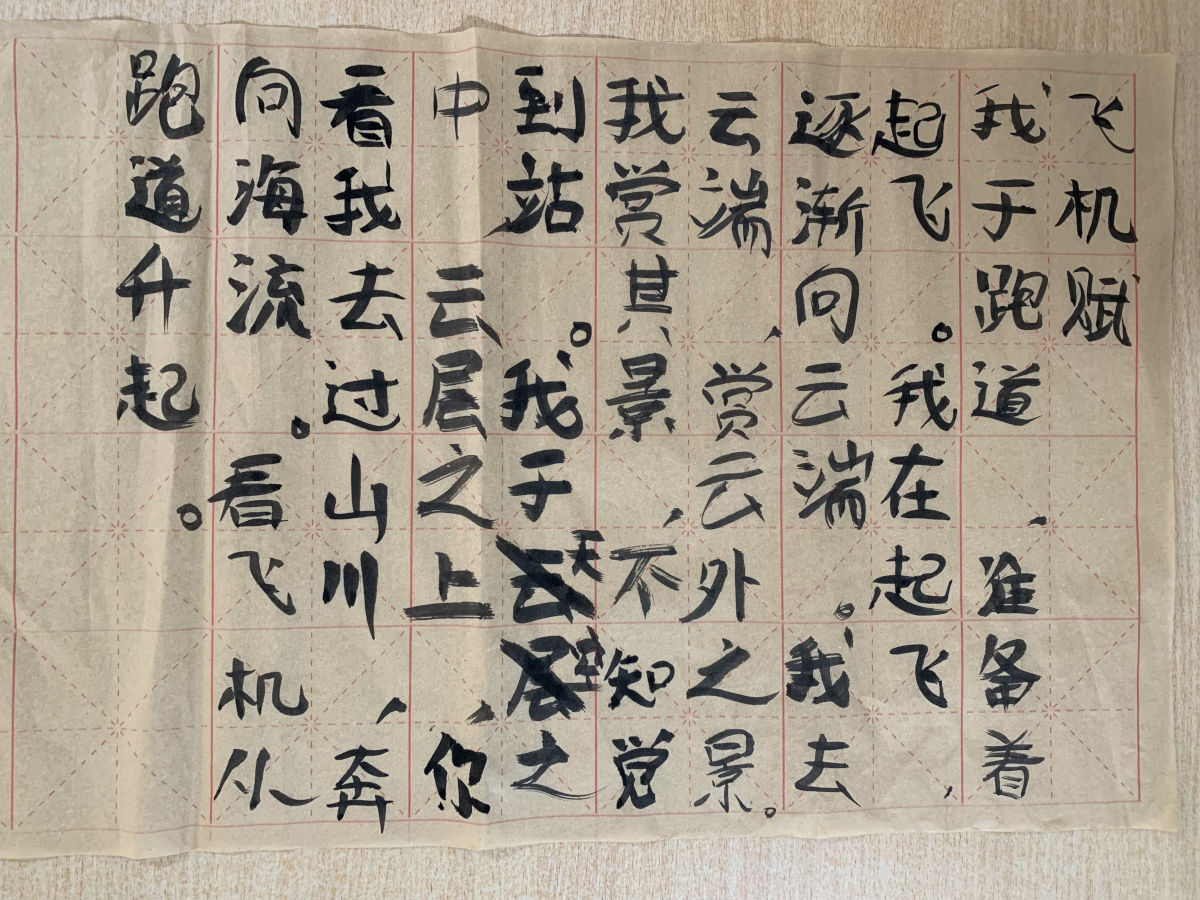 飞机赋
我于跑道，准备着
起飞。我在起飞，
逐渐向云端。我去
云端，赏云外之景。
我赏其景，不知觉
到站。我于天空之
中 云层之上，你
看我去过山川，奔
向海流。看飞机从
跑道升起。